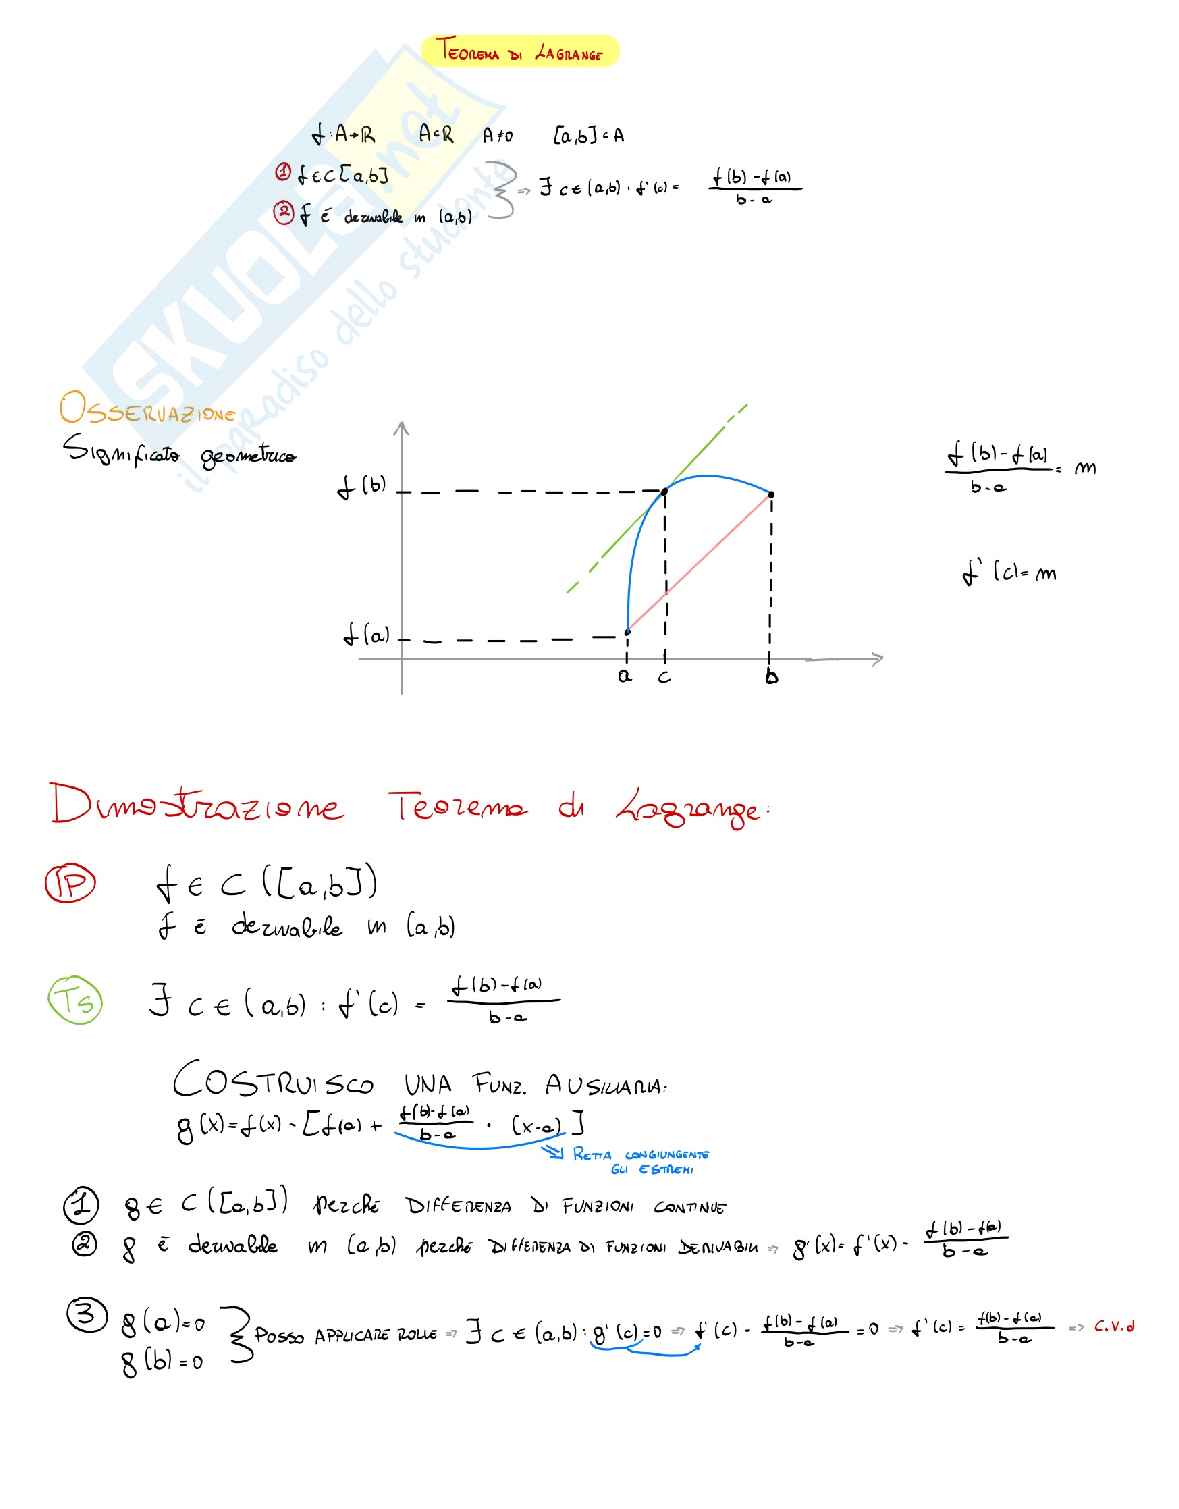 TEOREMA DI LAGRANGE
f: A→R A⊂R A≠0 [a,b]⊂A
① f∈C[a,b]
② f è derivabile in (a,b)
⇒ ∃ c∈(a,b): f'(c) = f(b)-f(a) / b-a
SKUOLA.net
il paradiso dello studente
OSSERVAZIONE
Significato geometrico
f(b)
f(a)
a c b
f(b)-f(a) / b-a = m
f'(c)=m
Dimostrazione Teorema di Lagrange:
IP f∈C([a,b])
f è derivabile in (a,b)
Ts ∃ c∈(a,b): f'(c) = f(b)-f(a) / b-a
COSTRUISCO UNA FUNZ. AUSILIARIA:
g(x)=f(x)-[f(a)+ f(b)-f(a) / b-a · (x-a)]
RETTA CONGIUNGENTE
GLI ESTREMI
① g∈C([a,b]) perché DIFFERENZA DI FUNZIONI CONTINUE
② g è derivabile in (a,b) perché DIFFERENZA DI FUNZIONI DERIVABILI ⇒ g'(x)=f'(x)- f(b)-f(a) / b-a
③ g(a)=0
g(b)=0
POSSO APPLICARE ROLLE ⇒ ∃ c∈(a,b): g'(c)=0 ⇒ f'(c)- f(b)-f(a) / b-a =0 ⇒ f'(c)= f(b)-f(a) / b-a ⇒ C.V.d